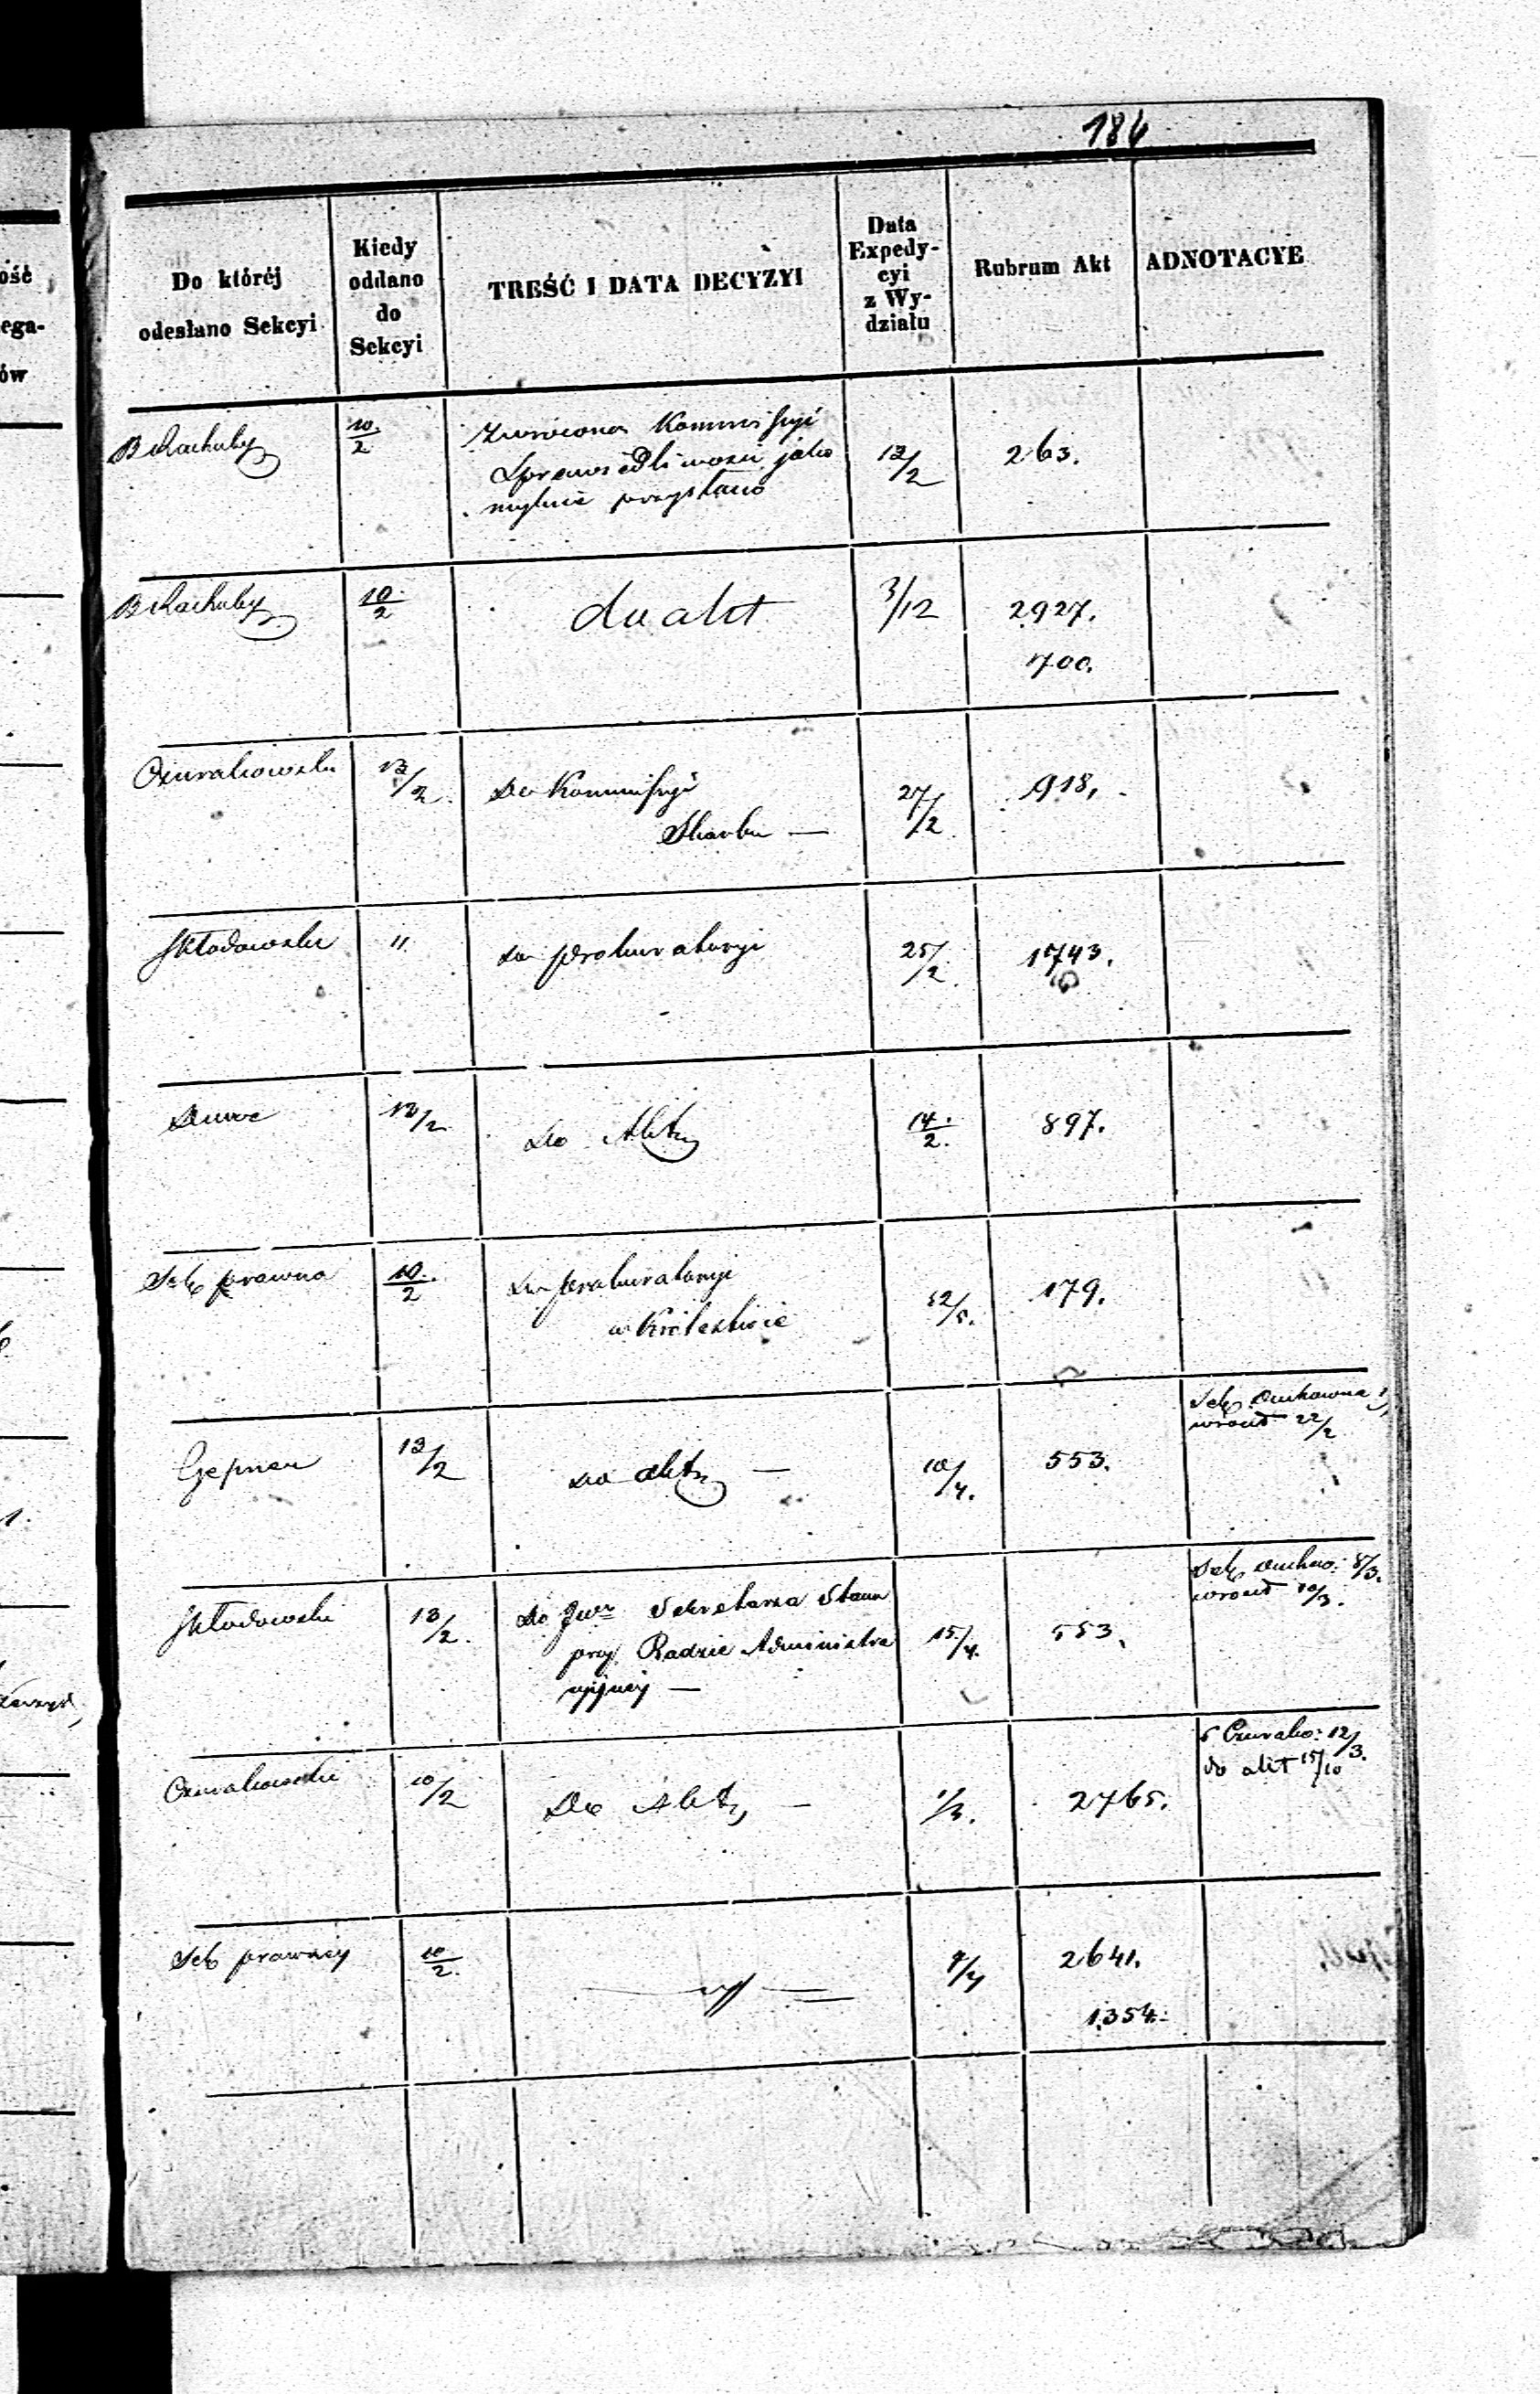 184
ość
ega-
ów
Do któréj
odesłano Sekcyi
Kiedy
oddano
do
Sekcyi
TREŚĆ I DATA DECYZYI
Data
Expedy-
cyi
z Wy-
działu
Rubrum Akt
ADNOTACYE
B Rachuby
10/2
Zwrócono Kommissyi
Sprawiedliwości jako
mylnie przysłano
13/2
263.
B Rachuby
10/2
do akt
3/12
2927.
1700.
Czurakowski
13/2
Do Kommissyi
Skarbu —
27/2
918.
Skłodowski
"
do prokuratoryi
25/2
1743.
13/2
do Akt
14/2.
897.
Sek prawna
10/2
do prokuratoryi
w Królestwie
12/5.
179.
Gepner
13/2
do akt —
10/4.
553.
Sek Duchowna
22/2
Skłodowski
13/2.
Do Sekretarza Stanu
przy Radzie Administra
cyjnej —
15/4.
553.
Sek Duchow: 8/3.
10/3.
Czurakowski
10/2
Do Akt —
1/3.
2765.
Czurako: 12/3.
do akt 15/10
Sek prawnej
10/2.
— " —
9/4
2641.
1354.